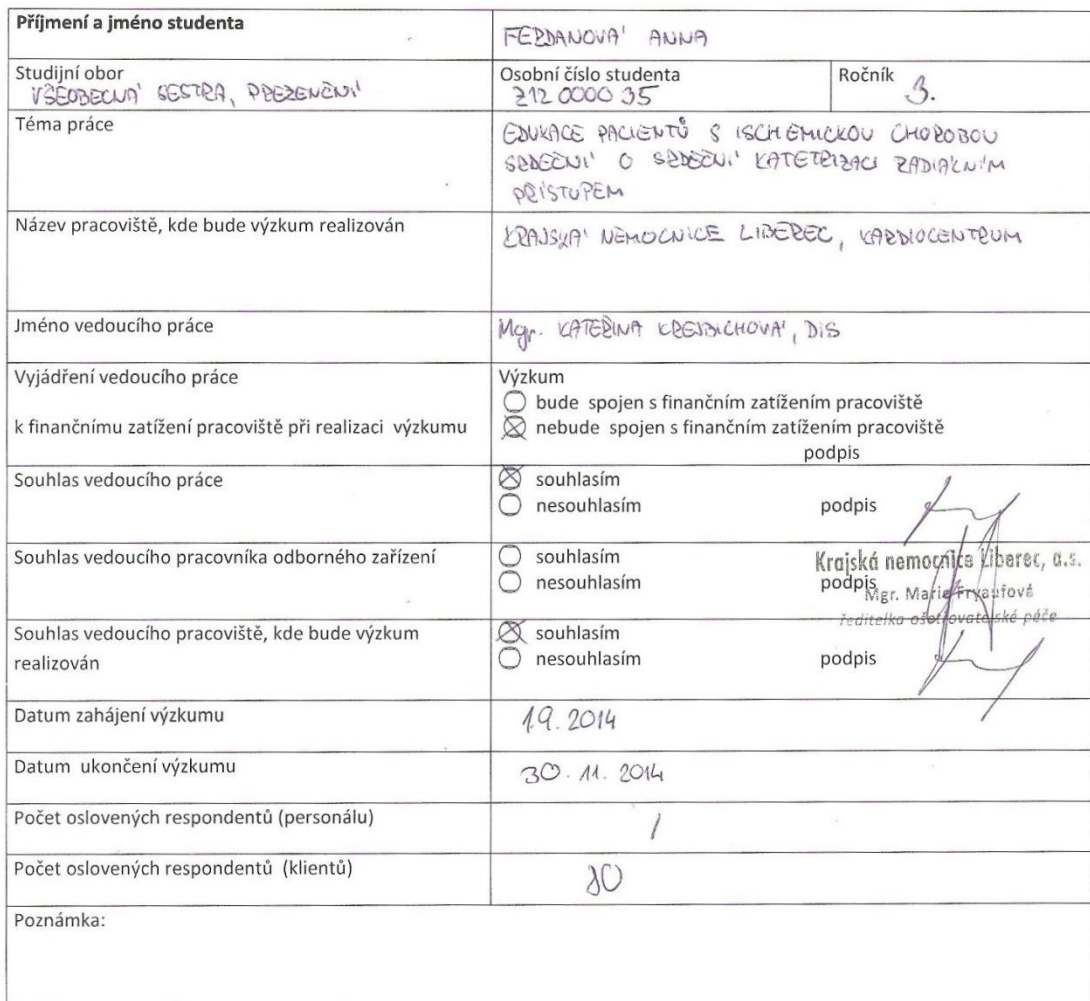 Příjmení a jméno studenta
FERDANOVÁ ANNA
Studijní obor
VŠEOBECNÁ SESTRA, PREZENČNÍ
Osobní číslo studenta
Z12 0000 35
Ročník
3.
Téma práce
EDUKACE PACIENTŮ S ISCHEMICKOU CHOROBOU
SRDEČNÍ O SRDEČNÍ KATETRIZACI RADIÁLNÍM
PŘÍSTUPEM
Název pracoviště, kde bude výzkum realizován
KRAJSKÁ NEMOCNICE LIBEREC, KARDIOCENTRUM
Jméno vedoucího práce
Mgr. KATEŘINA KREJBICHOVÁ, DIS
Vyjádření vedoucího práce
k finančnímu zatížení pracoviště při realizaci výzkumu
Výzkum
bude spojen s finančním zatížením pracoviště
nebude spojen s finančním zatížením pracoviště
podpis
Souhlas vedoucího práce
souhlasím
nesouhlasím podpis
Souhlas vedoucího pracovníka odborného zařízení
souhlasím
nesouhlasím podpis
Krajská nemocnice Liberec, a.s.
Mgr. Marie Fryaufová
ředitelka ošetřovatelské péče
Souhlas vedoucího pracoviště, kde bude výzkum
realizován
souhlasím
nesouhlasím podpis
Datum zahájení výzkumu
1.9. 2014
Datum ukončení výzkumu
30. 11. 2014
Počet oslovených respondentů (personálu)
/
Počet oslovených respondentů (klientů)
Poznámka: